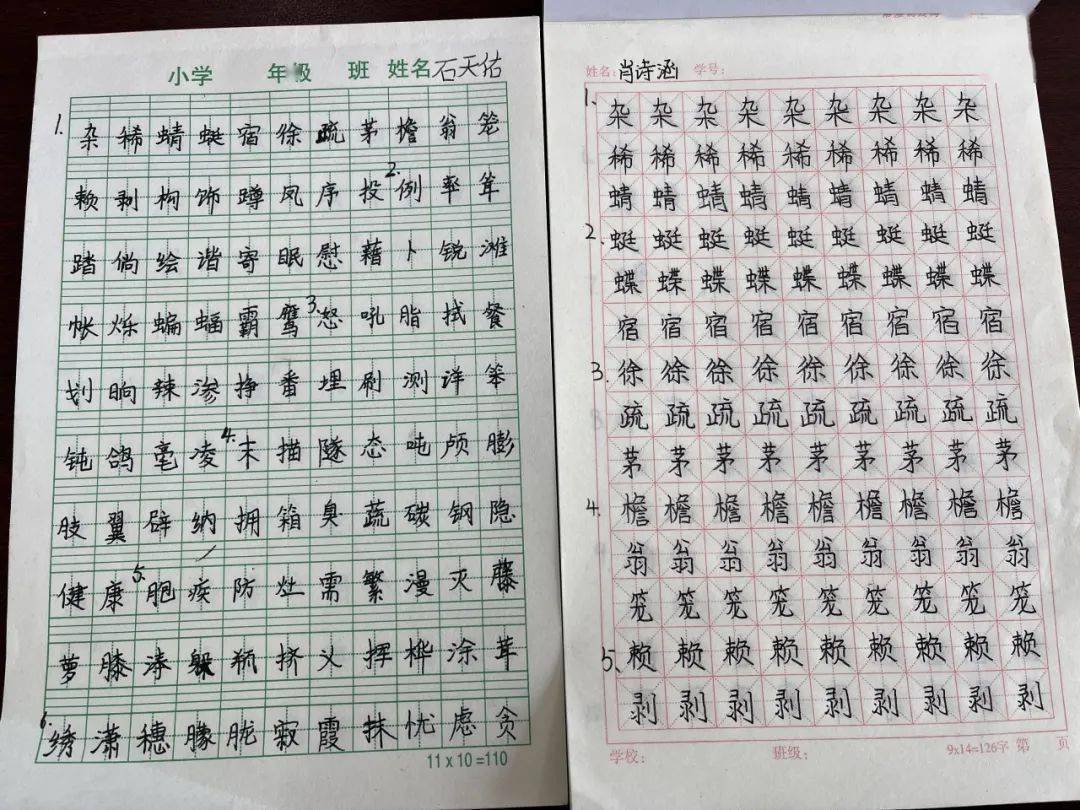 小学 年级 班 姓名 石天佑
1. 杂 稀 蜻 蜓 宿 徐 疏 茅 檐 翁 笼
赖 剥 构 饰 蹲 凤 序 投 2. 例 率 耸
踏 倘 绘 谐 寄 眠 慰 藉 卜 锐 滩
帐 烁 蝙 蝠 霸 鹰 3. 怒 吼 脂 拭 餐
划 晌 辣 渗 挣 番 埋 刷 测 详 笨
钝 鸽 毫 凌 4. 末 描 隧 态 吨 颅 膨
肢 翼 辟 纳 拥 箱 臭 蔬 碳 钢 隐
健 康 5. 胞 疾 防 灶 需 繁 漫 灭 藤
萝 膝 涛 躲 瓶 挤 义 挥 桦 涂 茸
6. 绣 潇 穗 朦 胧 寂 霞 抹 忧 虑 贪
11 x 10 =110
姓名: 肖诗涵 学号:
1. 杂 杂 杂 杂 杂 杂 杂 杂 杂
稀 稀 稀 稀 稀 稀 稀 稀 稀
蜻 蜻 蜻 蜻 蜻 蜻 蜻 蜻 蜻
2. 蜓 蜓 蜓 蜓 蜓 蜓 蜓 蜓 蜓
蝶 蝶 蝶 蝶 蝶 蝶 蝶 蝶 蝶
宿 宿 宿 宿 宿 宿 宿 宿 宿
3. 徐 徐 徐 徐 徐 徐 徐 徐 徐
疏 疏 疏 疏 疏 疏 疏 疏 疏
茅 茅 茅 茅 茅 茅 茅 茅 茅
4. 檐 檐 檐 檐 檐 檐 檐 檐 檐
翁 翁 翁 翁 翁 翁 翁 翁 翁
笼 笼 笼 笼 笼 笼 笼 笼 笼
5. 赖 赖 赖 赖 赖 赖 赖 赖 赖
剥 剥 剥 剥 剥 剥 剥 剥 剥
学校: 班级: 9x14=126字 第 页